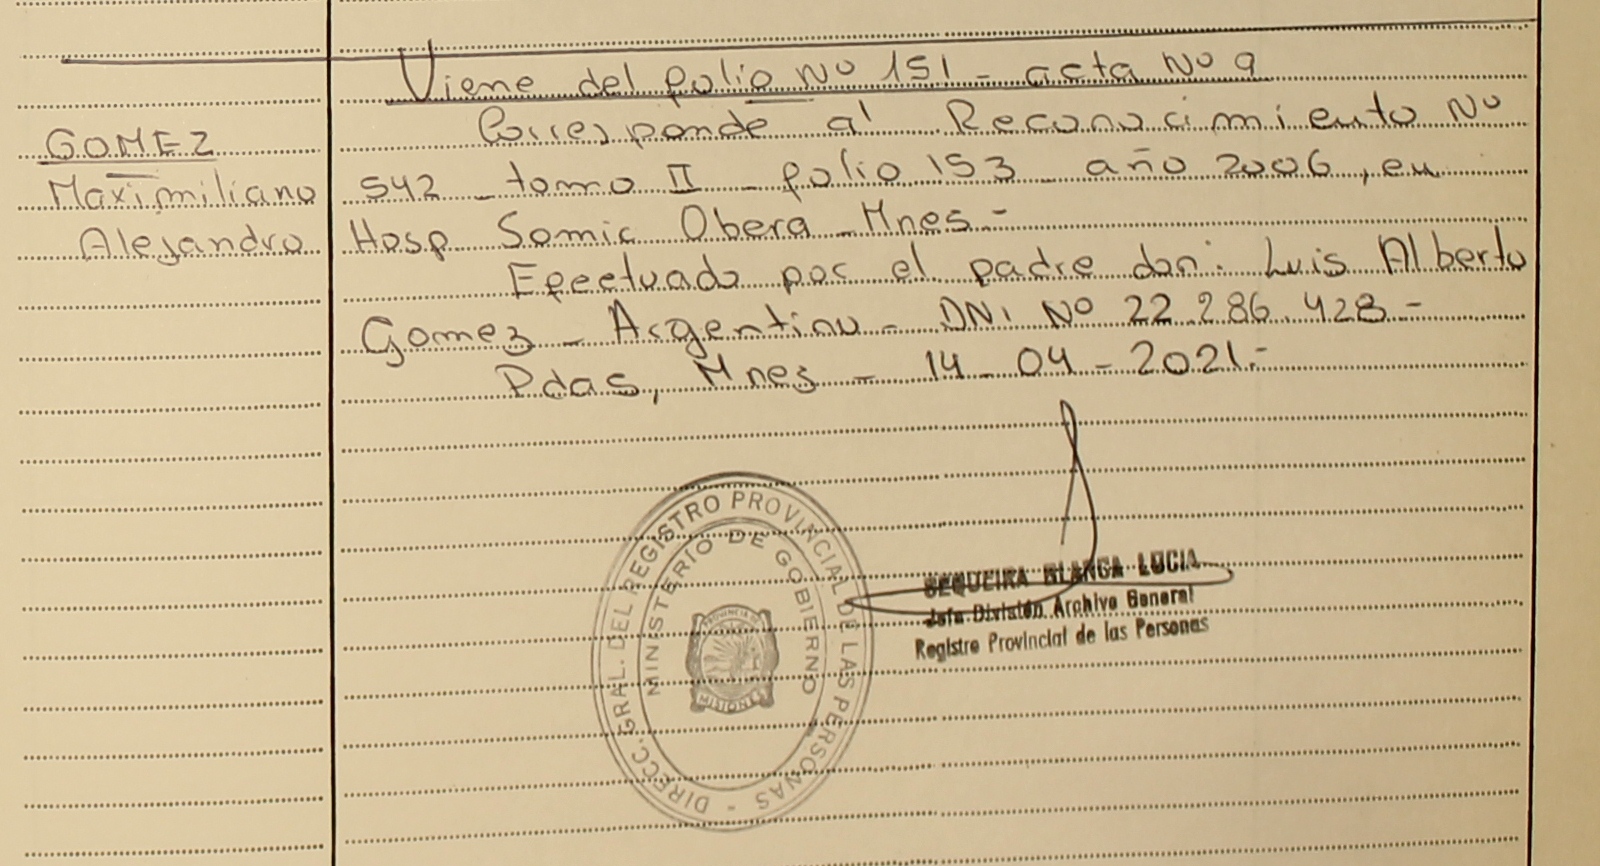 Viene del folio Nº 151 - acta Nº 9
GOMEZ
Maximiliano
Alejandro
Corresponde al Reconocimiento Nº
542 - tomo II - folio 153 - año 2006, en
Hosp Samic Obera - Mnes.-
Efectuado por el padre don: Luis Alberto
Gomez - Argentino - DNI Nº 22.286.428 -
Pdas, Mnes - 14 - 04 - 2021.-
DIRECC. GRAL. DEL REGISTRO PROVINCIAL DE LAS PERSONAS -
MINISTERIO DE GOBIERNO
PROVINCIA DE
MISIONES
SEQUEIRA BLANCA LUCIA
Jefa División Archivo General
Registro Provincial de las Personas